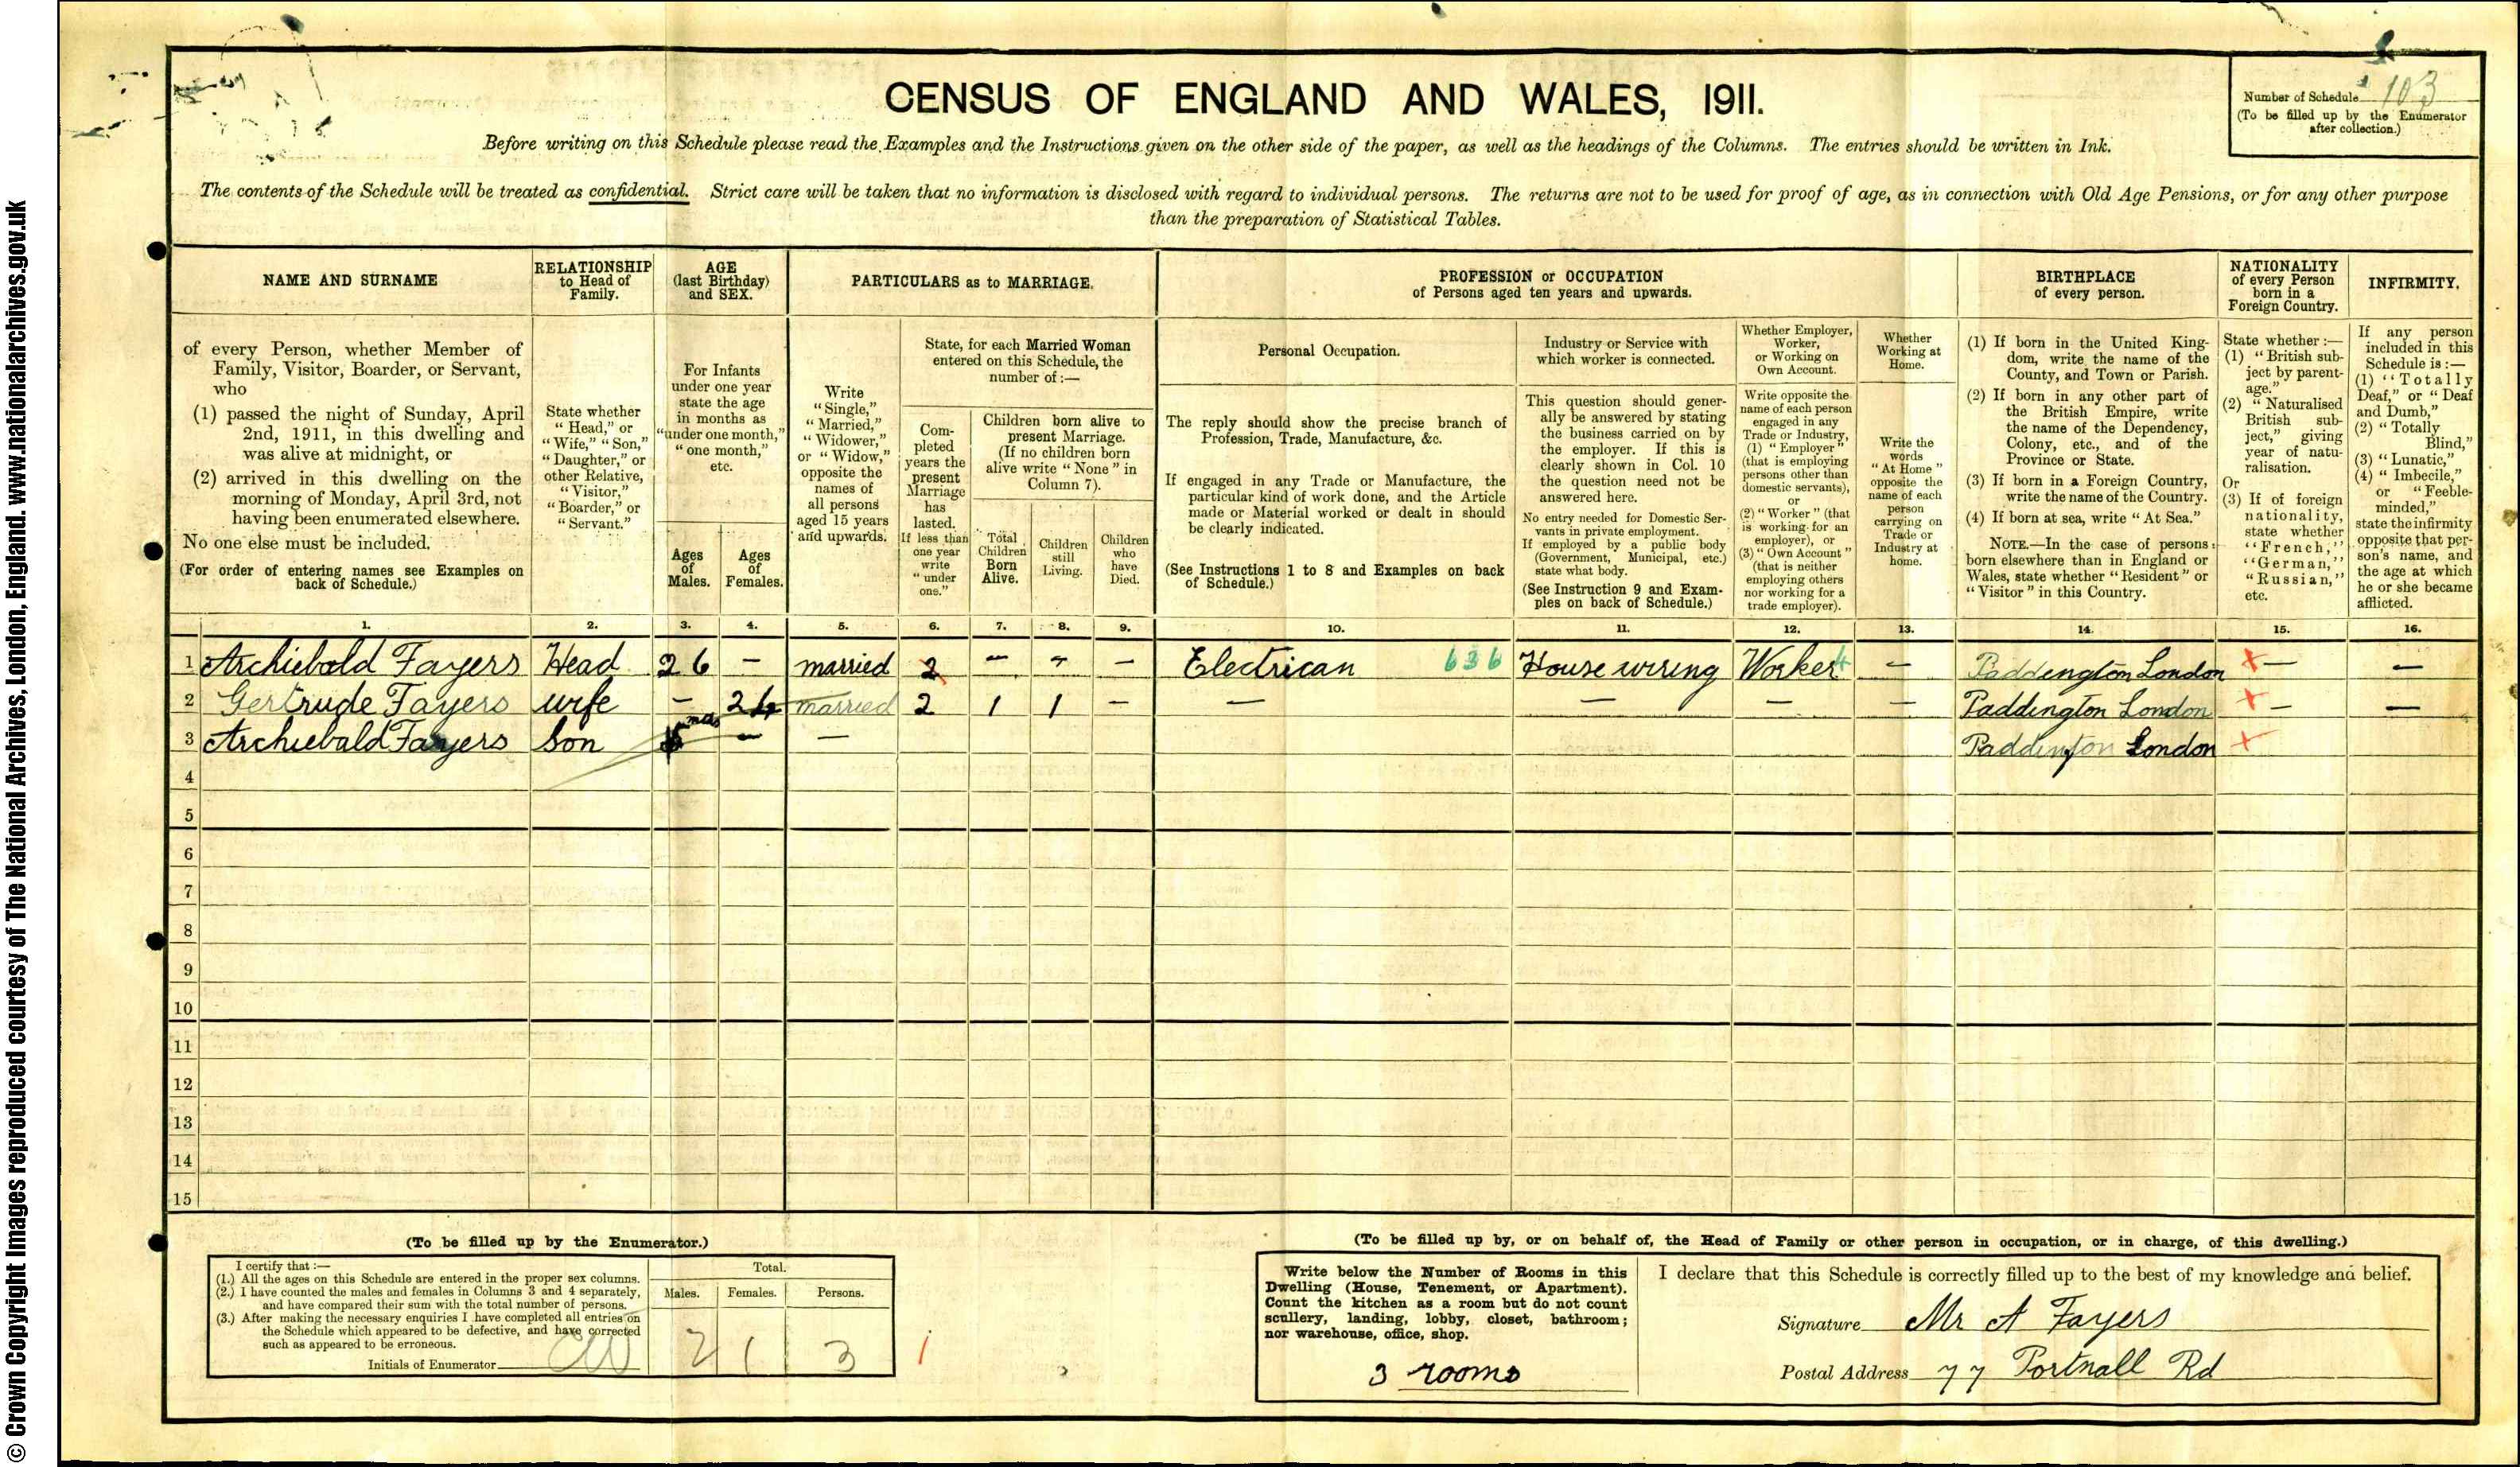 © Crown Copyright Images reproduced courtesy of The National Archives, London, England. www.nationalarchives.gov.uk
CENSUS OF ENGLAND AND WALES, 1911.
Number of Schedule 103
(To be filled up by the Enumerator
after collection.)
Before writing on this Schedule please read the Examples and the Instructions given on the other side of the paper, as well as the headings of the Columns. The entries should be written in Ink.
The contents of the Schedule will be treated as confidential. Strict care will be taken that no information is disclosed with regard to individual persons. The returns are not to be used for proof of age, as in connection with Old Age Pensions, or for any other purpose
than the preparation of Statistical Tables.
NAME AND SURNAME
of every Person, whether Member of
Family, Visitor, Boarder, or Servant,
who
(1) passed the night of Sunday, April
2nd, 1911, in this dwelling and
was alive at midnight, or
(2) arrived in this dwelling on the
morning of Monday, April 3rd, not
having been enumerated elsewhere.
No one else must be included.
(For order of entering names see Examples on
back of Schedule.)
RELATIONSHIP
to Head of
Family.
State whether
"Head," or
"Wife," "Son,"
"Daughter," or
other Relative,
"Visitor,"
"Boarder," or
"Servant."
AGE
(last Birthday)
and SEX.
For Infants
under one year
state the age
in months as
"under one month,"
"one month,"
etc.
Ages
of
Males.
Ages
of
Females.
PARTICULARS as to MARRIAGE.
Write
"Single,"
"Married,"
"Widower,"
or "Widow,"
opposite the
names of
all persons
aged 15 years
and upwards.
State, for each Married Woman
entered on this Schedule, the
number of :—
Com-
pleted
years the
present
Marriage
has
lasted.
If less than
one year
write
"under
one."
Children born alive to
present Marriage.
(If no children born
alive write "None" in
Column 7).
Total
Children
Born
Alive.
Children
still
Living.
Children
who
have
Died.
PROFESSION or OCCUPATION
of Persons aged ten years and upwards.
Personal Occupation.
The reply should show the precise branch of
Profession, Trade, Manufacture, &c.
If engaged in any Trade or Manufacture, the
particular kind of work done, and the Article
made or Material worked or dealt in should
be clearly indicated.
(See Instructions 1 to 8 and Examples on back
of Schedule.)
Industry or Service with
which worker is connected.
This question should gener-
ally be answered by stating
the business carried on by
the employer. If this is
clearly shown in Col. 10
the question need not be
answered here.
No entry needed for Domestic Ser-
vants in private employment.
If employed by a public body
(Government, Municipal, etc.)
state what body.
(See Instruction 9 and Exam-
ples on back of Schedule.)
Whether Employer,
Worker,
or Working on
Own Account.
Write opposite the
name of each person
engaged in any
Trade or Industry,
(1) "Employer"
(that is employing
persons other than
domestic servants),
or
(2) "Worker" (that
is working for an
employer), or
(3) "Own Account"
(that is neither
employing others
nor working for a
trade employer).
Whether
Working at
Home.
Write the
words
"At Home"
opposite the
name of each
person
carrying on
Trade or
Industry at
home.
BIRTHPLACE
of every person.
(1) If born in the United King-
dom, write the name of the
County, and Town or Parish.
(2) If born in any other part of
the British Empire, write
the name of the Dependency,
Colony, etc., and of the
Province or State.
(3) If born in a Foreign Country,
write the name of the Country.
(4) If born at sea, write "At Sea."
NOTE.—In the case of persons
born elsewhere than in England or
Wales, state whether "Resident" or
"Visitor" in this Country.
NATIONALITY
of every Person
born in a
Foreign Country.
State whether :—
(1) "British sub-
ject by parent-
age."
(2) "Naturalised
British sub-
ject," giving
year of natu-
ralisation.
Or
(3) If of foreign
nationality,
state whether
"French,"
"German,"
"Russian,"
etc.
INFIRMITY.
If any person
included in this
Schedule is :—
(1) "Totally
Deaf," or "Deaf
and Dumb,"
(2) "Totally
Blind,"
(3) "Lunatic,"
(4) "Imbecile,"
or "Feeble-
minded,"
state the infirmity
opposite that per-
son's name, and
the age at which
he or she became
afflicted.
1. 2. 3. 4. 5. 6. 7. 8. 9. 10. 11. 12. 13. 14. 15. 16.
1 Archiebald Fayers Head 26 — married 2 — — — Electrican 636 House wiring Worker 4 — Paddington London + — —
2 Gertrude Fayers wife — 24 married 2 1 1 — — — — — Paddington London + — —
3 Archiebald Fayers Son mos — — Paddinton London +
4
5
6
7
8
9
10
11
12
13
14
15
(To be filled up by the Enumerator.)
I certify that :—
(1.) All the ages on this Schedule are entered in the proper sex columns.
(2.) I have counted the males and females in Columns 3 and 4 separately,
and have compared their sum with the total number of persons.
(3.) After making the necessary enquiries I have completed all entries on
the Schedule which appeared to be defective, and have corrected
such as appeared to be erroneous.
Initials of Enumerator
Total.
Males. Females. Persons.
2 1 3 1
(To be filled up by, or on behalf of, the Head of Family or other person in occupation, or in charge, of this dwelling.)
Write below the Number of Rooms in this
Dwelling (House, Tenement, or Apartment).
Count the kitchen as a room but do not count
scullery, landing, lobby, closet, bathroom;
nor warehouse, office, shop.
3 rooms
I declare that this Schedule is correctly filled up to the best of my knowledge and belief.
Signature Mr A Fayers
Postal Address 77 Portnall Rd